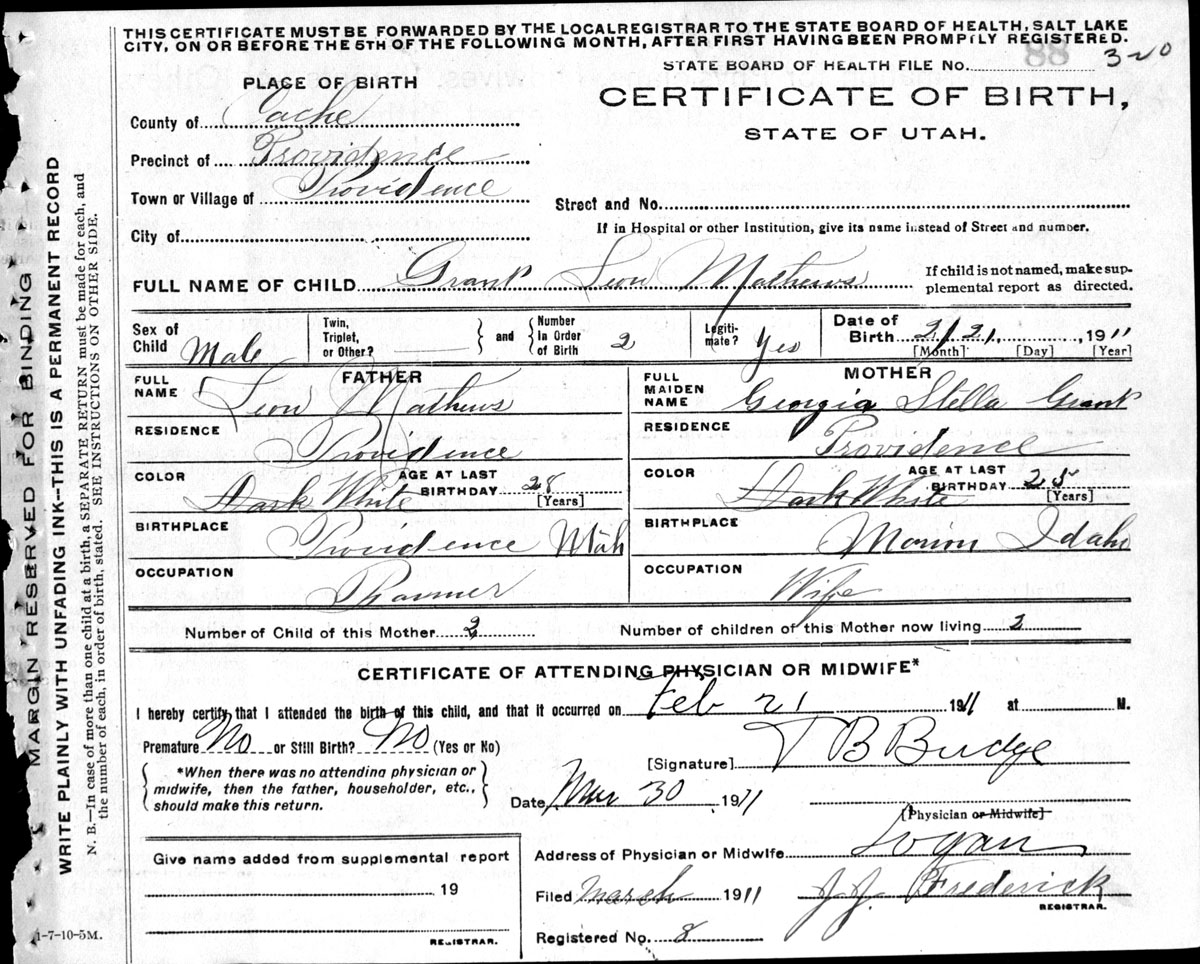 THIS CERTIFICATE MUST BE FORWARDED BY THE LOCAL REGISTRAR TO THE STATE BOARD OF HEALTH, SALT LAKE
CITY, ON OR BEFORE THE 5TH OF THE FOLLOWING MONTH, AFTER FIRST HAVING BEEN PROMPTLY REGISTERED.
STATE BOARD OF HEALTH FILE NO. 88 320
PLACE OF BIRTH
CERTIFICATE OF BIRTH,
STATE OF UTAH.
County of Cache
Precinct of Providence
Town or Village of Providence
Street and No.
City of
If in Hospital or other Institution, give its name instead of Street and number.
FULL NAME OF CHILD Grant Leon Mathews
If child is not named, make sup-
plemental report as directed.
Sex of Child Male
Twin, Triplet, or Other? and Number In Order of Birth 2
Legiti-mate? Yes
Date of Birth 2/21, 1911
[Month] [Day] [Year]
FATHER
FULL NAME Leon Mathews
RESIDENCE Providence
COLOR Dark White AGE AT LAST BIRTHDAY 28
[Years]
BIRTHPLACE Providence Utah
OCCUPATION Farmer
MOTHER
FULL MAIDEN NAME Georgia Stella Grant
RESIDENCE Providence
COLOR Dark White AGE AT LAST BIRTHDAY 25
[Years]
BIRTHPLACE Marion Idaho
OCCUPATION Wife
Number of Child of this Mother 2
Number of children of this Mother now living 2
CERTIFICATE OF ATTENDING PHYSICIAN OR MIDWIFE*
I hereby certify that I attended the birth of this child, and that it occurred on Feb 21 1911 at M.
Premature No or Still Birth? No (Yes or No)
*When there was no attending physician or
midwife, then the father, householder, etc.,
should make this return.
[Signature] T B Budge
Date Mar 30 1911
[Physician or Midwife]
Give name added from supplemental report
19
REGISTRAR.
Address of Physician or Midwife Logan
Filed March 1911 J. J. Frederick
REGISTRAR.
Registered No. 8
1-7-10-5M.
MARGIN RESERVED FOR BINDING
WRITE PLAINLY WITH UNFADING INK--THIS IS A PERMANENT RECORD
N. B.—In case of more than one child at a birth, a SEPARATE RETURN must be made for each, and
the number of each, in order of birth, stated. SEE INSTRUCTIONS ON OTHER SIDE.